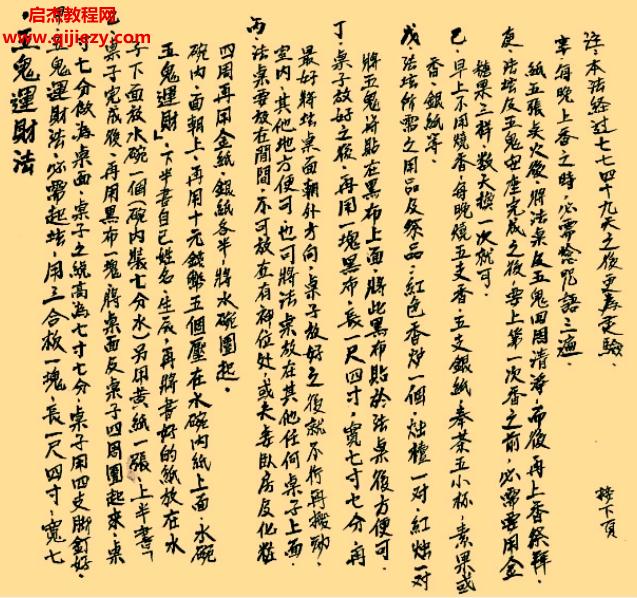 启杰教程有限公司
www.qijiezy.com
五鬼運財法
五鬼運財法,必需起坛,用三合板一塊,長一尺四寸,寬七
寸七分做為桌面,桌子之總高為七寸七分,桌子用四支脚釘好。
桌子完成後,再用黑布一塊將桌面及桌子四周圍起來,桌
子下面放水碗一個(碗内裝七分水)另用黄紙一張,上半書「
五鬼運財」下半書自己姓名、生辰,再將書好的紙放在水
碗内,面朝上,再用十元錢幣五個壓在水碗内紙上面,水碗
四周再用金紙、銀紙各半將水碗圍起。
丙、法桌要放在閒間,不可放在有神位处,或夫妻臥房及化粧
室内,其他地方便可,也可將法桌放在其他任何桌子上面,
最好將坛桌面朝外方向,桌子放好之後就不行再搬動。
丁、桌子放好之後,再用一塊黑布,長一尺四寸,寬七寸七分,再
將五鬼符貼在黑布上面,將此黑布貼於法桌後方便可。
戊、法坛所需之用品及祭品:紅色香炉一個,燭檯一对,紅燭一对
香、銀紙等。
己、早上不用燒香,每晚燒五支香,五支銀紙,奉茶五小杯,素果或
糖果三样,数天换一次就可。
庚、法坛及五鬼安座完成之後,要上第一次香之前,必需要用金
紙五張炎火後,將法桌及五鬼四周清淨,而後再上香祭拜。
辛、每晚上香之時,必需唸咒語三遍。
註:本法经过七七四十九天之後更為灵驗。
接下頁